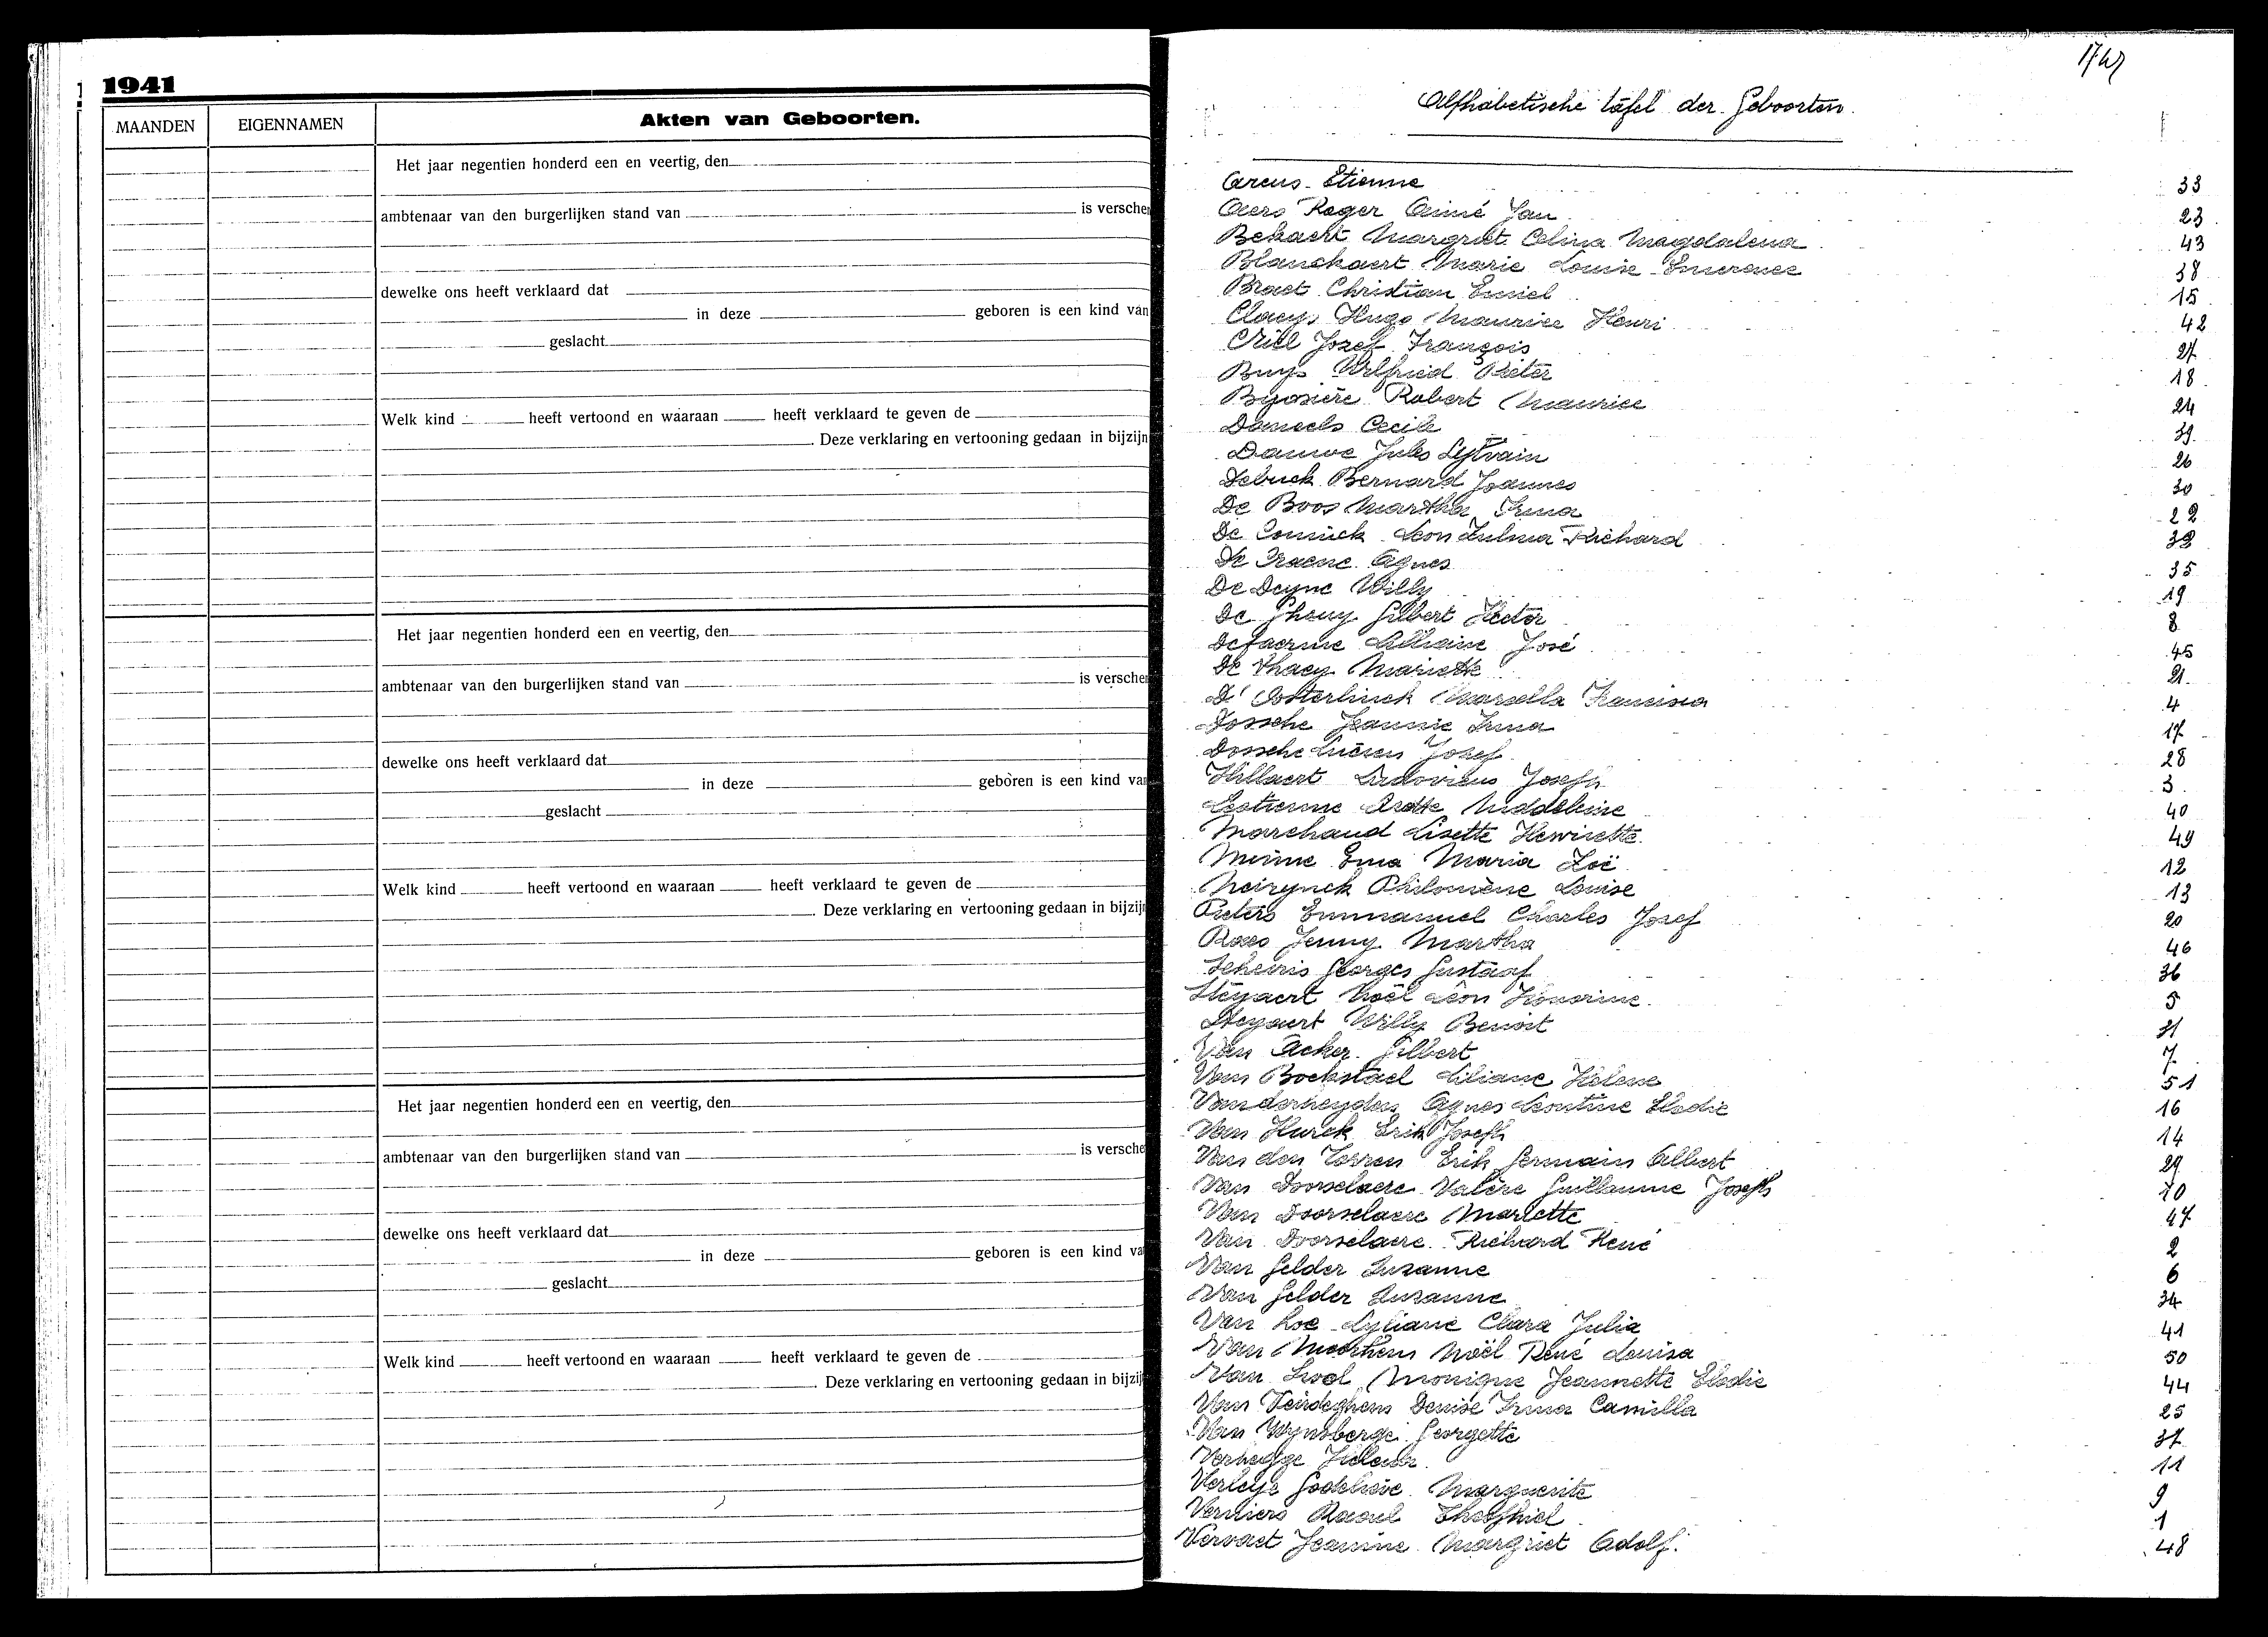 1941
MAANDEN
EIGENNAMEN
Akten van Geboorten.
Het jaar negentien honderd een en veertig, den
ambtenaar van den burgerlijken stand van is versche
dewelke ons heeft verklaard dat
in deze geboren is een kind van
geslacht
Welk kind heeft vertoond en waaraan heeft verklaard te geven de
Deze verklaring en vertooning gedaan in bijzijn
Het jaar negentien honderd een en veertig, den
ambtenaar van den burgerlijken stand van is versche
dewelke ons heeft verklaard dat
in deze geboren is een kind va
geslacht
Welk kind heeft vertoond en waaraan heeft verklaard te geven de
Deze verklaring en vertooning gedaan in bijzij
Het jaar negentien honderd een en veertig, den
ambtenaar van den burgerlijken stand van is versche
dewelke ons heeft verklaard dat
in deze geboren is een kind va
geslacht
Welk kind heeft vertoond en waaraan heeft verklaard te geven de
Deze verklaring en vertooning gedaan in bijzij
Alfhabetische tafel der Geboorten.
Etienne 33
Roger Aimé Jan 23
Bekaert Margriet Celina Magdalena 43
Blanckaert Marie Louise 38
Braet Christian Emiel 15
Claeys Hugo Maurice Henri 42
Criel Jozef François 27
Buys Wilfried Pieter 18
Byosière Robert Maurice 24
Daneels Cecile 39
Dauwe Jules Sylvain 26
Debuck Bernard Joannes 30
De Boos Martha Irma 22
De Coninck Leon Zulma Richard 32
De Craene Agnes 35
De Deyne Willy 19
De Gheuy Gilbert Hector 8
Lilliane José 45
De Thaey Mariette 21
D'Oosterlinck Marcella Francisca 4
Dossche Jeannie Irma 17
Dossche Lucien Jozef 28
Hillaert Ludovicus Joseph 3
Lestienne Maddeleine 40
Marchand Lisette Henriette 49
Minne Erna Maria Zoë 12
Neirynck Philomène Louise 13
Pieters Emmanuel Charles Jozef 20
Roos Jenny Martha 46
Scheiris Georges Gustaaf 36
Steyaert Noël Léon Honorine 5
Steyaert Willy Benoit 31
Van Acker Gilbert 7
Van Bockstael Liliane Helene 51
Vanderheyden Agnes Leontine Elodie 16
Van Hurck Erik Joseph 14
Van den Erik Germain Albert 29
Van Doorselaere Valère Guillaume Joseph 10
Van Doorselaere Mariette 47
Van Doorselaere Richard René 2
Van Gelder Suzanne 6
Van Gelder Suzanne 34
Van Loe Lyliane Clara Julia 41
Van Noël René Louisa 50
Van Monique Jeannette Elodie 44
Van Denise Irma Camilla 25
Van Wynsberge Georgette 37
Verhegge Helena 11
Verleye Godelieve Marguerite 9
Verniers Raoul Theophiel 1
Vervaet Jeanine Margriet Adolf. 48